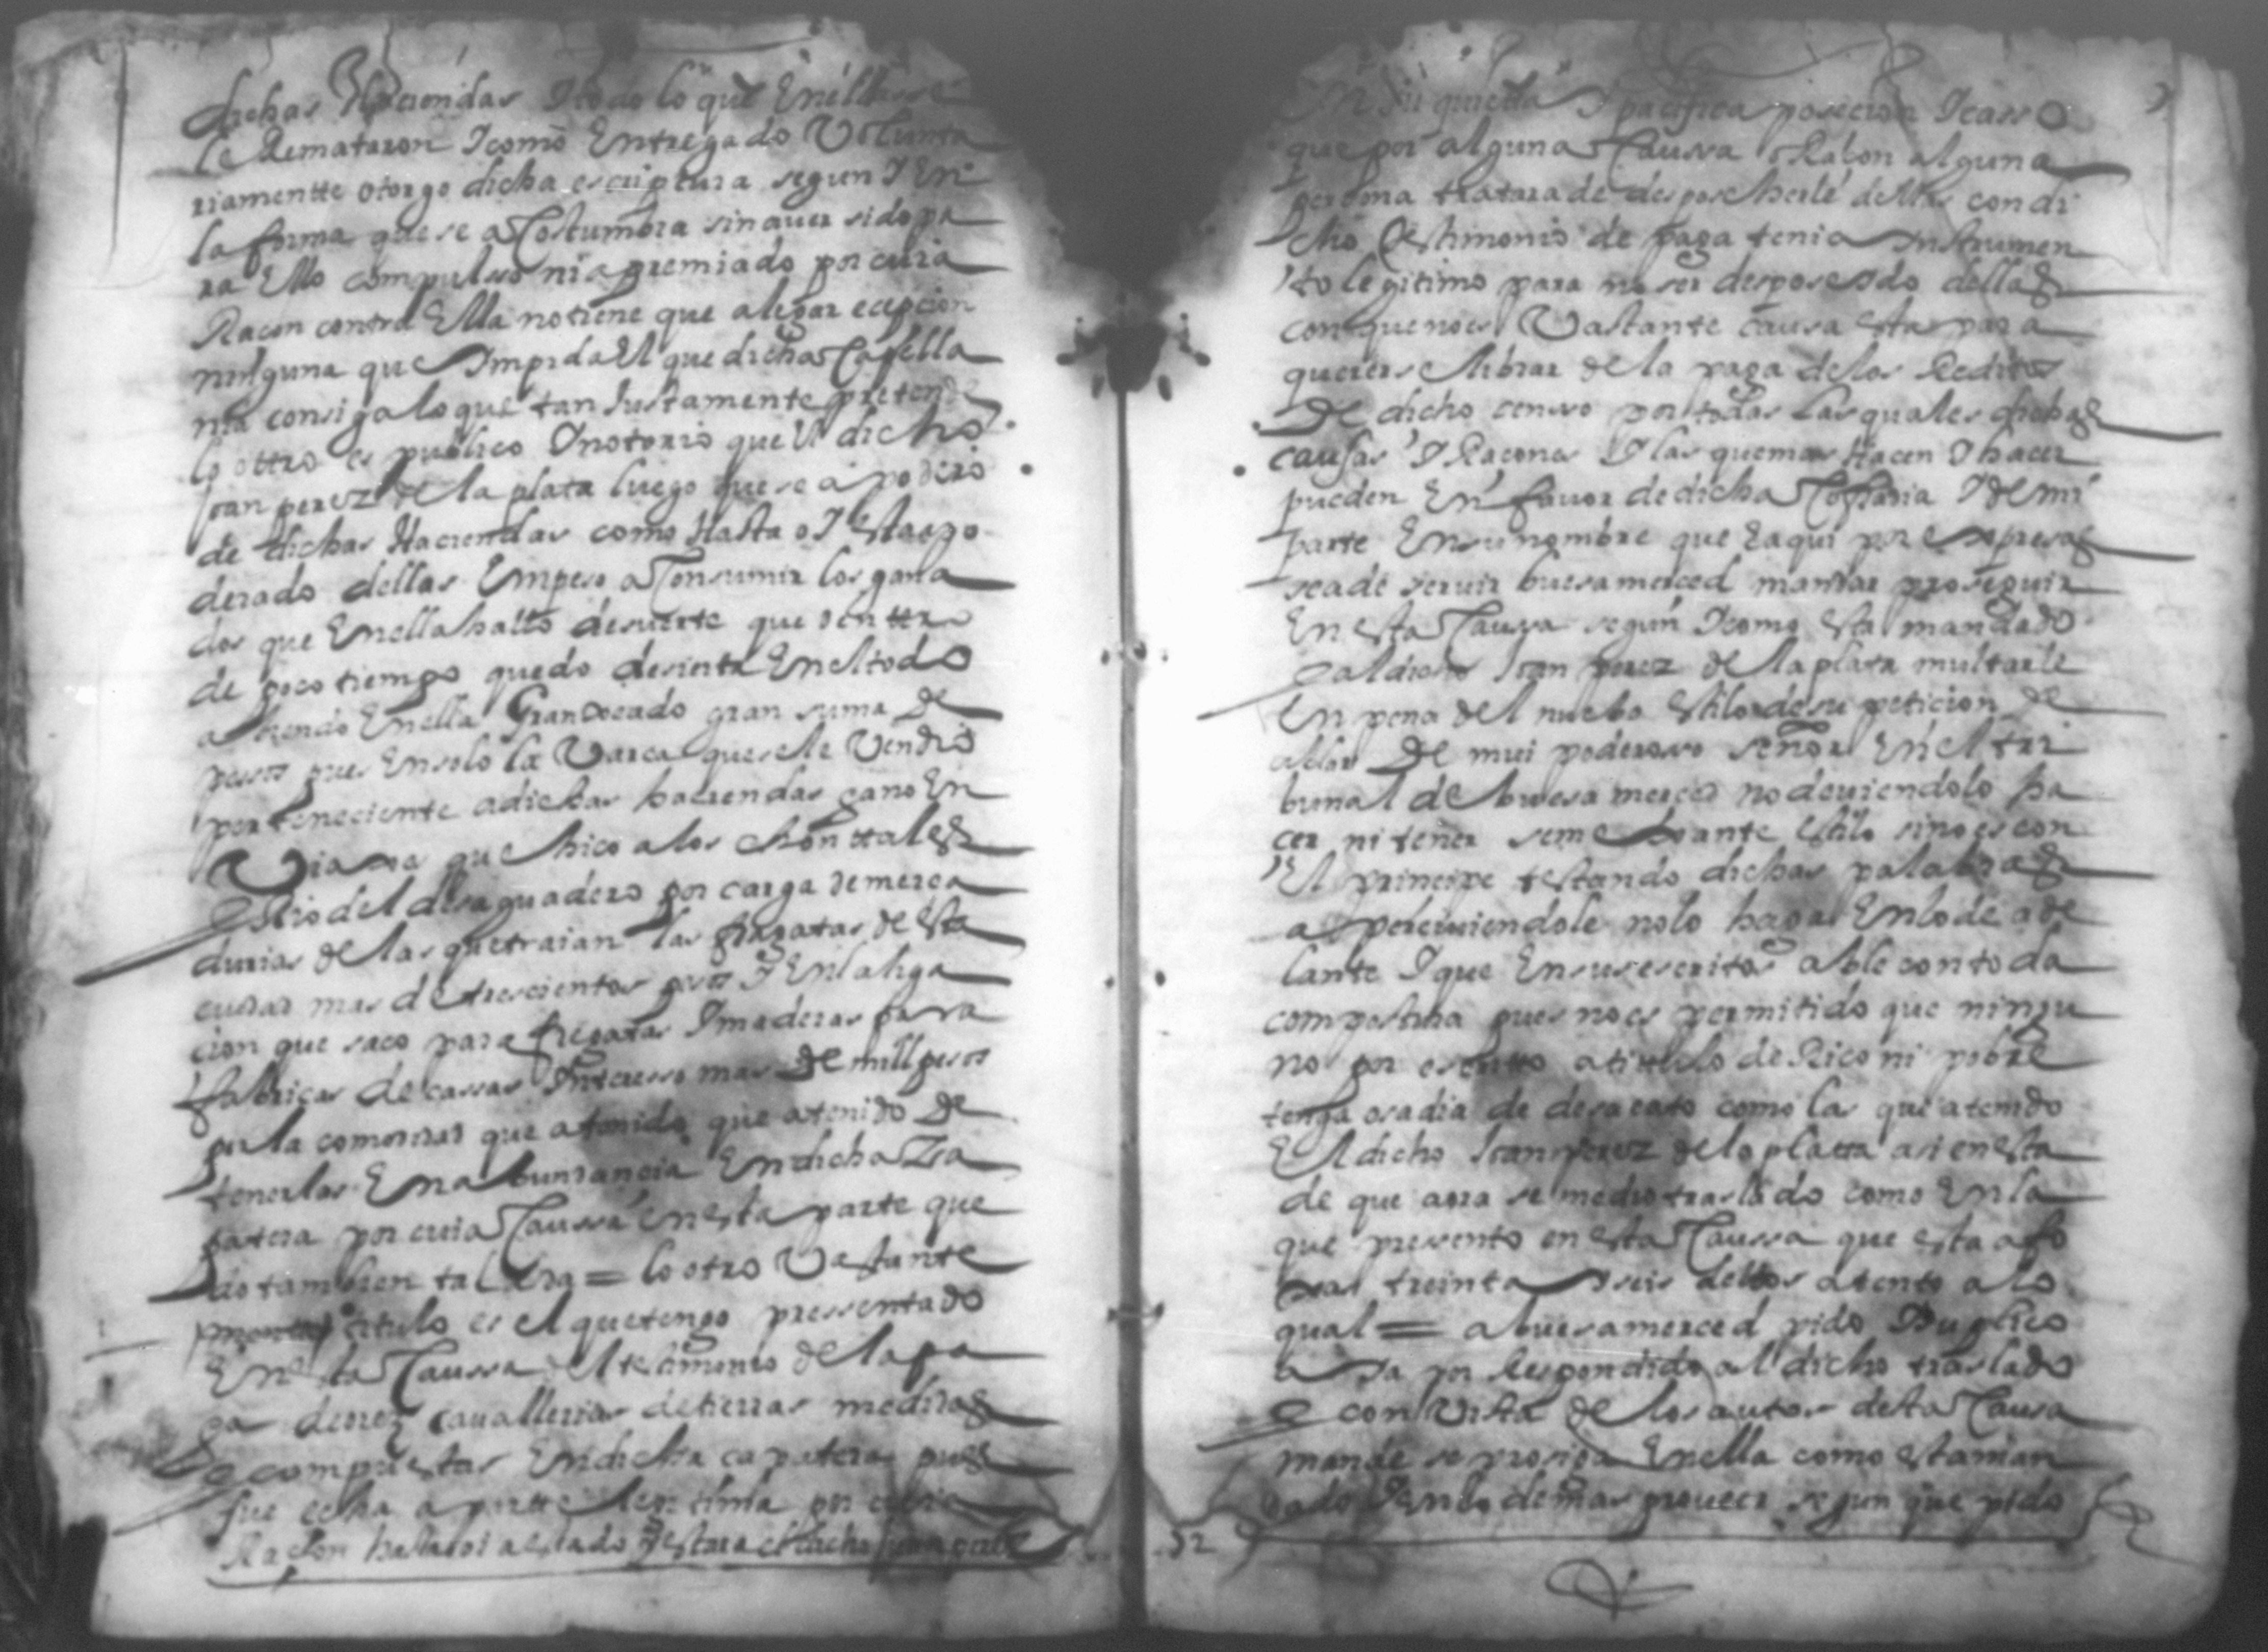 dichas Haciendas I todo lo que Enellas se
le Remataron I como Entregado Volunta
riamentte otorgo dicha escriptura segun I En
la forma que se aCostumbra sin auer sido pa
ra Ello compulso ni apremiado por cuia
Racon contra Ella no tiene que alegar ecepcion
ninguna que Impida El que dicha Capella
nia consiga lo que tan Justamente pretende
lo ottro es publico I notorio que El dicho
Joan perez de la plata luego que se apodero
de dichas Haciendas como Hasta oI Esta apo
derado dellas Empeso aConsumir los gana
dos que Enella hallo de suerte que denttro
de poco tiempo quedo desierta Eneltodo
abiendo Enella Granxeado gran suma de
pesos pues En solo la Varca que se le Vendio
perteneciente a dichas haciendas gano En
Viaxes que hico a los chonttales
e Rio del desaguadero por carga de merca
durias de las que traian las fragatas de esta
ciudad mas de trescientos pesos I En
cion que saco para fregatas I maderas para
fabricas de cassas Intereso mas de mill pesos
por la comodidad que a tenido que a tenido de
tenerlas En abundancia En dicha Za
patera por cuia Caussa en esta parte que
do tambien tal = lo otro Vastante
titulo es el que tengo pressentado
En esta Caussa El testimonio de la pa
ga de diez cauallerias de tierras medidas
e compuestas En dicha capatera pues
fue echa a partte lexitima por cuia
Racon hasta oi a estado I estara el dicho Juan perez
En su quieta I pacifica posecion I casso
que por alguna Caussa o Racon alguna
persona tratara de desposeherle dellas con di
cho testimonio de paga tenia Instrumen
to legitimo para no ser desposeido dellas
con que no es Vastante causa esta para
quererse librar de la paga de los Reditos
de dicho censso por todas las quales dichas
causas I Racones I las que mas Hacen I hacer
pueden En fauor de dicha Cofradia I de mi
parte En su nombre que E aqui por espresas
se a de seruir buesamerced mandar proseguir
En esta Caussa segun I como esta mandado
e al dicho Joan perez de la plata multarle
En pena del nuebo Estilo de su peticion de
ablar de mui poderoso señor En el tri
bunal de buesa merced no deuiendolo ha
cer ni tener semexante Estilo sino es con
El principe testando dichas palabras
aperciuiendole no lo haga En lo de ade
lante I que En sus escritos able con toda
compostura pues no es permitido que ningu
no por escritto a titulo de Rico ni pobre
tenga osadia de desacato como las que a tenido
El dicho Joan perez de la platta asi en esta
de que aora se me dio traslado como En la
que presento en esta Caussa que esta a fo
xas treinta I seis dellos atento a lo
qual = a buesamerced pido I suplico
a Ia por Respondido al dicho traslado
e con Vista de los autos desta Causa
mande se prosiga Enella como esta man
dado I En lo demas proueer segun que pido
32